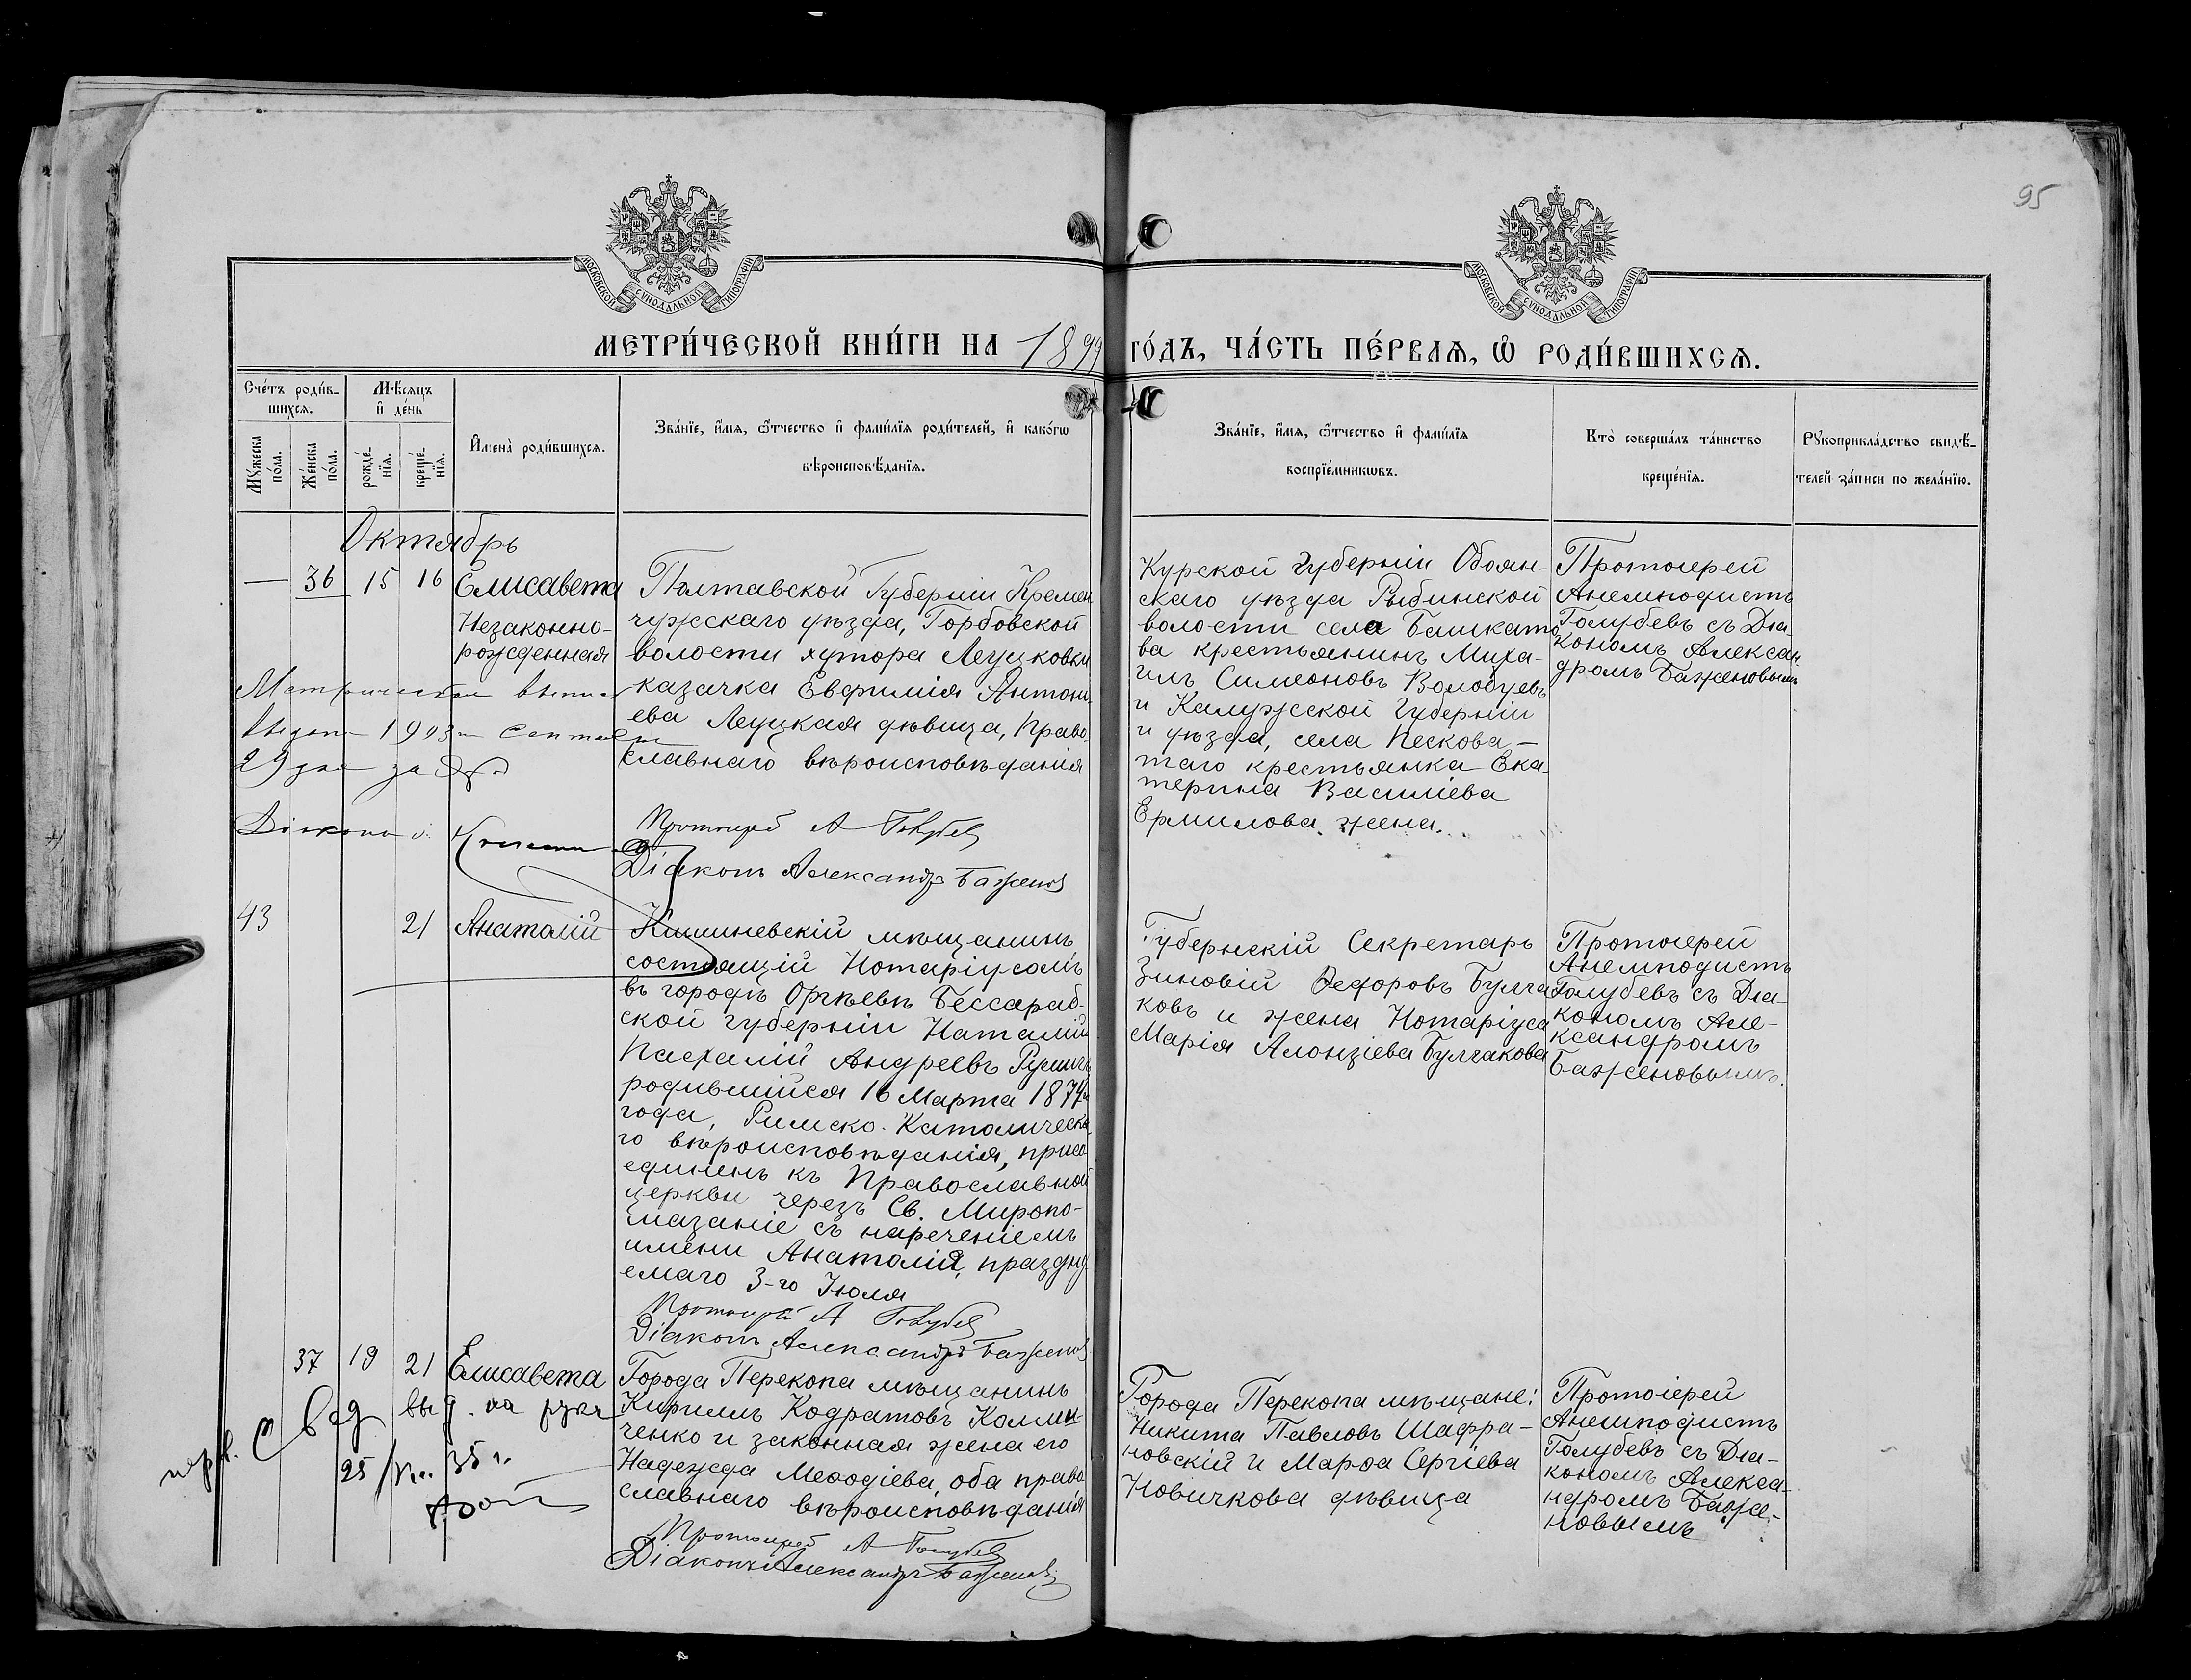 95
МОСКОВСКОЙ СѴНОДАЛЬНОЙ ТИПОГРАФІИ
МОСКОВСКОЙ СѴНОДАЛЬНОЙ ТИПОГРАФІИ
МЕТРИ́ЧЕСКОЙ КНИ́ГИ НА 1899 ГО́ДЪ, ЧА́СТЬ ПЕ́РВАѦ, Ѡ҆ РОДИ́ВШИХСѦ.
Сче́тъ роди́в-
шихсѧ.
Мѣ́сѧцъ
и҆ де́нь
Мꙋ́жеска по́ла.
Же́нска по́ла.
рожде́-
нїѧ.
креще́-
нїѧ.
И҆мена̀ роди́вшихсѧ.
Зва́нїе, и҆́мѧ, ѻ҆́тчество и҆ фами́лїѧ роди́телей, и҆ како́гѡ
вѣроисповѣ́данїѧ.
Зва́нїе, и҆́мѧ, ѻ҆́тчество и҆ фами́лїѧ
воспрїе́мникѡвъ.
Кто̀ соверша́лъ та́инство
креще́нїѧ.
Рꙋкоприкла́дство свидѣ́-
телей за́писи по жела́нїю.
Октябрь
— 36 15 16 Елисавета
Незаконно-
рожденная
Полтавской Губерніи Кремен
чугскаго уѣзда, Горбовской
волости хутора Луцковки
казачка Евфимія Антоні
ева Луцкая дѣвица, Право-
славнаго вѣроисповѣданія
Протоіерей А Голубев
Діаконъ Александръ Баженов
выдана 1903 г.
29 дня за №
Діаконъ
Курской Губерніи Обоян-
скаго уѣзда Рыбинской
волости села Башкато
ва крестьянинъ Миха-
илъ Симеоновъ Волобуевъ
и Калужской Губерніи
и уѣзда, села Пескова-
таго крестьянка Ека-
терина Василіева
Ермилова жена.
Протоіерей
Анемподистъ
Голубевъ съ Діа-
кономъ Алексан-
дромъ Баженовымъ
43 21 Анатолій
Кишиневскій мѣщанинъ
состоящій Нотаріусомъ
въ городѣ Оргѣевѣ Бессараб-
ской губерніи Наталій
Пасхалій Андреевъ
родившійся 16 Марта 1874
года, Римско-Католическа
го вѣроисповѣданія, присо
единенъ къ Православной
церкви черезъ Св. Миропо-
мазаніе съ нареченіемъ
имени Анатолій, праздну
емаго 3-го Іюля
Протоіерей А Голубев
Діаконъ Александръ Баженов
Губернскій Секретарь
Зиновій Ѳедоровъ Булга
ковъ и жена Нотаріуса
Марія Алонзіева Булгакова
Протоіерей
Анемподистъ
Голубевъ съ Діа-
кономъ Але-
ксандромъ
Баженовымъ.
37 19 21 Елисавета
Города Перекопа мѣщанинъ
Кириллъ Кодратовъ Колни-
ченко и законная жена его
Надежда Меѳодіева, оба право
славнаго вѣроисповѣданія
Протоіерей А Голубев
Діаконъ Александръ Баженов
выд. на руки
25
35 г.
Города Перекопа мѣщане:
Никита Павловъ Шафра-
новскій и Марѳа Сергіева
Новичкова дѣвица
Протоіерей
Анемподистъ
Голубевъ съ Діа-
кономъ Алекса-
ндромъ Баже-
новымъ